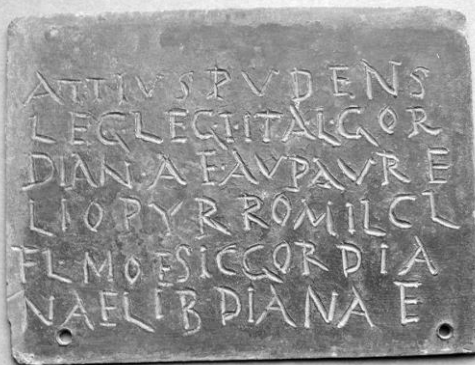 ATTIVS PVDENS
LEG LEGI·ITAL·GOR
DIAN·A EAVPAVRE
LIOPYRROMILCL
FL·MOESICGORDIA
NAELIBDIANAE